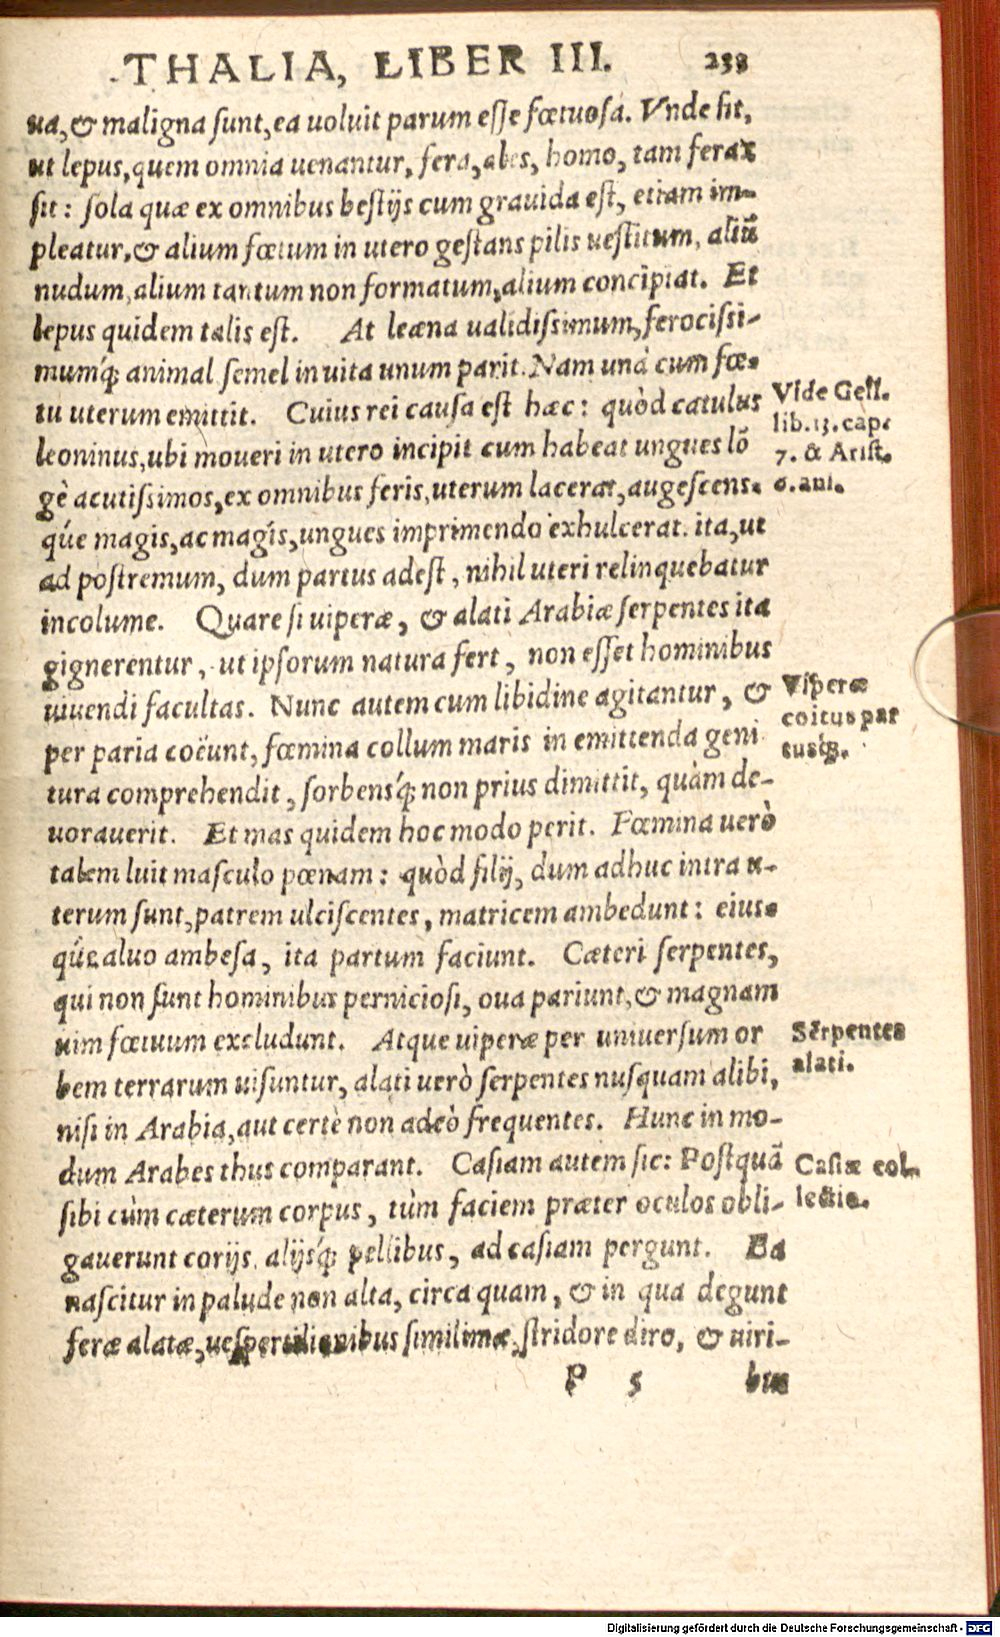 THALIA, LIBER III. 233
ua, & maligna ſunt, ea uoluit parum eſſe fœtuoſa. Vnde fit,
ut lepus, quem omnia uenantur, fera, ales, homo, tam ferax
ſit: ſola quæ ex omnibus beſtijs cum grauida eſt, etiam im-
pleatur, & alium fœtum in utero geſtans pilis ueſtitum, aliũ
nudum, alium tantum non formatum, alium concipiat. Et
lepus quidem talis eſt. At leæna ualidiſsimum, ferociſsi-
mumq́; animal ſemel in uita unum parit. Nam unà cum fœ-
tu uterum emittit. Cuius rei cauſa eſt hæc: quòd catulus
Vide Gell.
lib. 13. cap.
7. & Ariſt.
6. ani.
leoninus, ubi moueri in utero incipit cum habeat ungues lõ
gè acutiſsimos, ex omnibus feris, uterum lacerat, augeſcens-
qúe magis, ac magis, ungues imprimendo exhulcerat. ita, ut
ad poſtremum, dum partus adeſt, nihil uteri relinquebatur
incolume. Quare ſi uiperæ, & alati Arabiæ ſerpentes ita
gignerentur, ut ipſorum natura fert, non eſſet hominibus
uiuendi facultas. Nunc autem cum libidine agitantur, &
Viperæ
coitus par
tusq́;.
per paria coëunt, fœmina collum maris in emittenda geni
tura comprehendit, ſorbensq́; non prius dimittit, quàm de-
uorauerit. Et mas quidem hoc modo perit. Fœmina uerò
talem luit maſculo pœnam: quòd filij, dum adhuc intra u-
terum ſunt, patrem ulciſcentes, matricem ambedunt: eius-
qúe aluo ambeſa, ita partum faciunt. Cæteri ſerpentes,
qui non ſunt hominibus pernicioſi, oua pariunt, & magnam
uim fœtuum excludunt. Atque uiperæ per uniuerſum or
Serpentes
alati.
bem terrarum uiſuntur, alati uerò ſerpentes nuſquam alibi,
niſi in Arabia, aut certè non adeò frequentes. Hunc in mo-
dum Arabes thus comparant. Caſiam autem ſic: Poſtquã
Caſiæ col-
lectio.
ſibi cùm cæterum corpus, tùm faciem præter oculos obli-
gauerunt corijs, alijsq́; pellibus, ad caſiam pergunt. Ea
naſcitur in palude non alta, circa quam, & in qua degunt
feræ alatæ, ueſpertilionibus ſimilimæ, ſtridore diro, & uiri-
P 5 bus